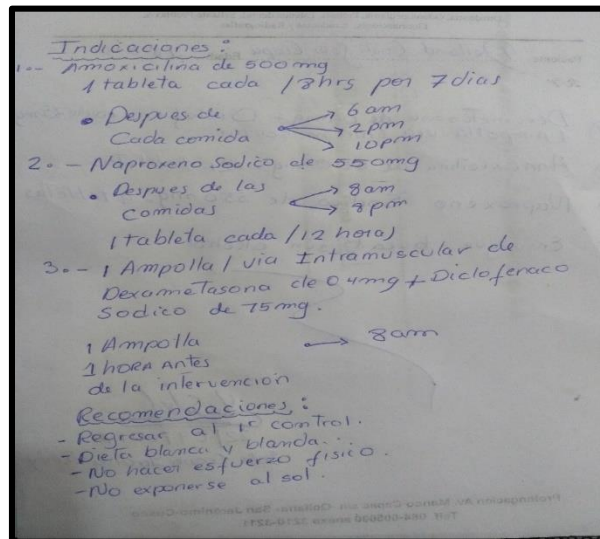 Indicaciones:
1.- Amoxicilina de 500mg
1 tableta cada / 8hrs por 7 dias
• Despues de Cada comida → 6am
→ 2pm
→ 10pm
2.- Naproxeno Sodico de 550mg
• Despues de las comidas → 8am
→ 8pm
1 tableta cada / 12 horas
3.- 1 Ampolla / via Intramuscular de
Dexametasona de 04mg + Diclofenaco
Sodico de 75mg.
1 Ampolla → 8am
1 hora Antes
de la intervencion
Recomendaciones:
- Regresar al 1er control.
- Dieta blanca y blanda...
- No hacer esfuerzo fisico.
- No exponerse al sol.